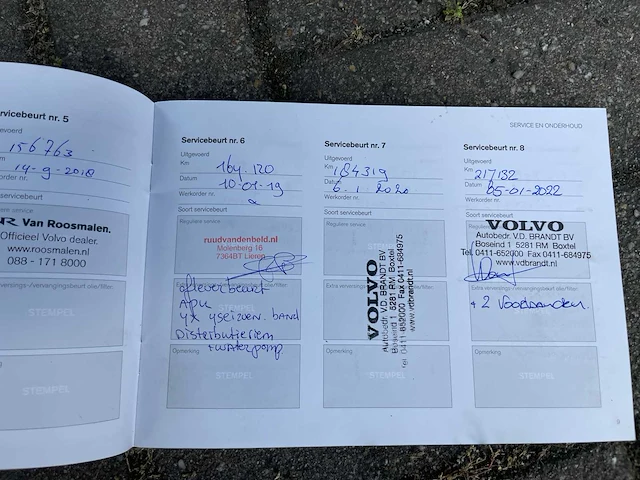 SERVICE EN ONDERHOUD
Servicebeurt nr. 5
156763
14-9-2018
Van Roosmalen.
Officieel Volvo dealer.
www.roosmalen.nl
088 - 171 8000
STEMPEL
Servicebeurt nr. 6
Uitgevoerd
Km 164.120
Datum 10-01-19
Werkorder nr.
Soort servicebeurt
Reguliere service
ruudvandenbeld.nl
Molenberg 16
7364BT Lieren
afleverbeurt
APK
4x 4seizoen. band
Distributieriem
+ waterpomp
Opmerking
STEMPEL
Servicebeurt nr. 7
Uitgevoerd
Km 184319
Datum 6-1-2020
Werkorder nr.
Soort servicebeurt
Reguliere service
VOLVO
Autobedr. V.D. BRANDT BV
Boseind 1 5281 RM Boxtel
Tel. 0411-652000 Fax 0411-684975
www.vdbrandt.nl
Opmerking
STEMPEL
Servicebeurt nr. 8
Uitgevoerd
Km 217132
Datum 05-01-2022
Werkorder nr.
Soort servicebeurt
Reguliere service
VOLVO
Autobedr. V.D. BRANDT BV
Boseind 1 5281 RM Boxtel
Tel. 0411-652000 Fax 0411-684975
www.vdbrandt.nl
Extra verversings-/vervangingsbeurt olie/filter:
+ 2 voorbanden
Opmerking
STEMPEL